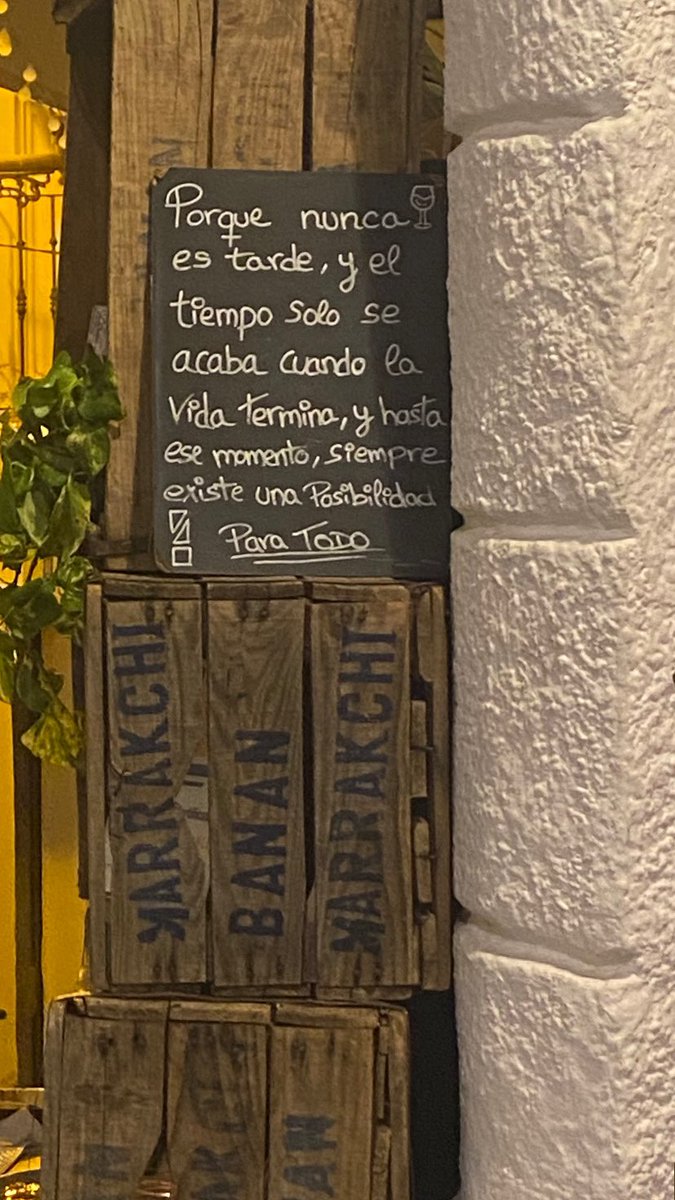 Porque nunca
es tarde, y el
tiempo solo se
acaba cuando la
Vida termina, y hasta
ese momento, siempre
existe una Posibilidad
Para TODO
MARRAKCHI
BANAN
MARRAKCHI